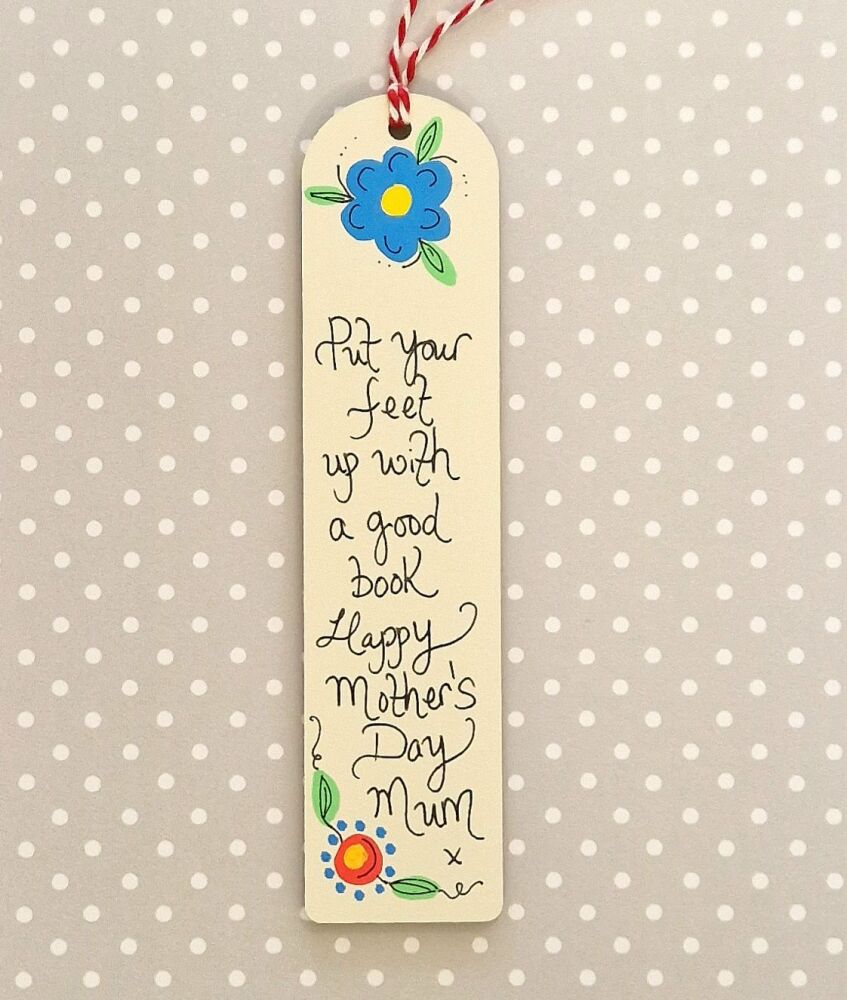 Put your
feet
up with
a good
book
Happy
Mother's
Day
Mum
x